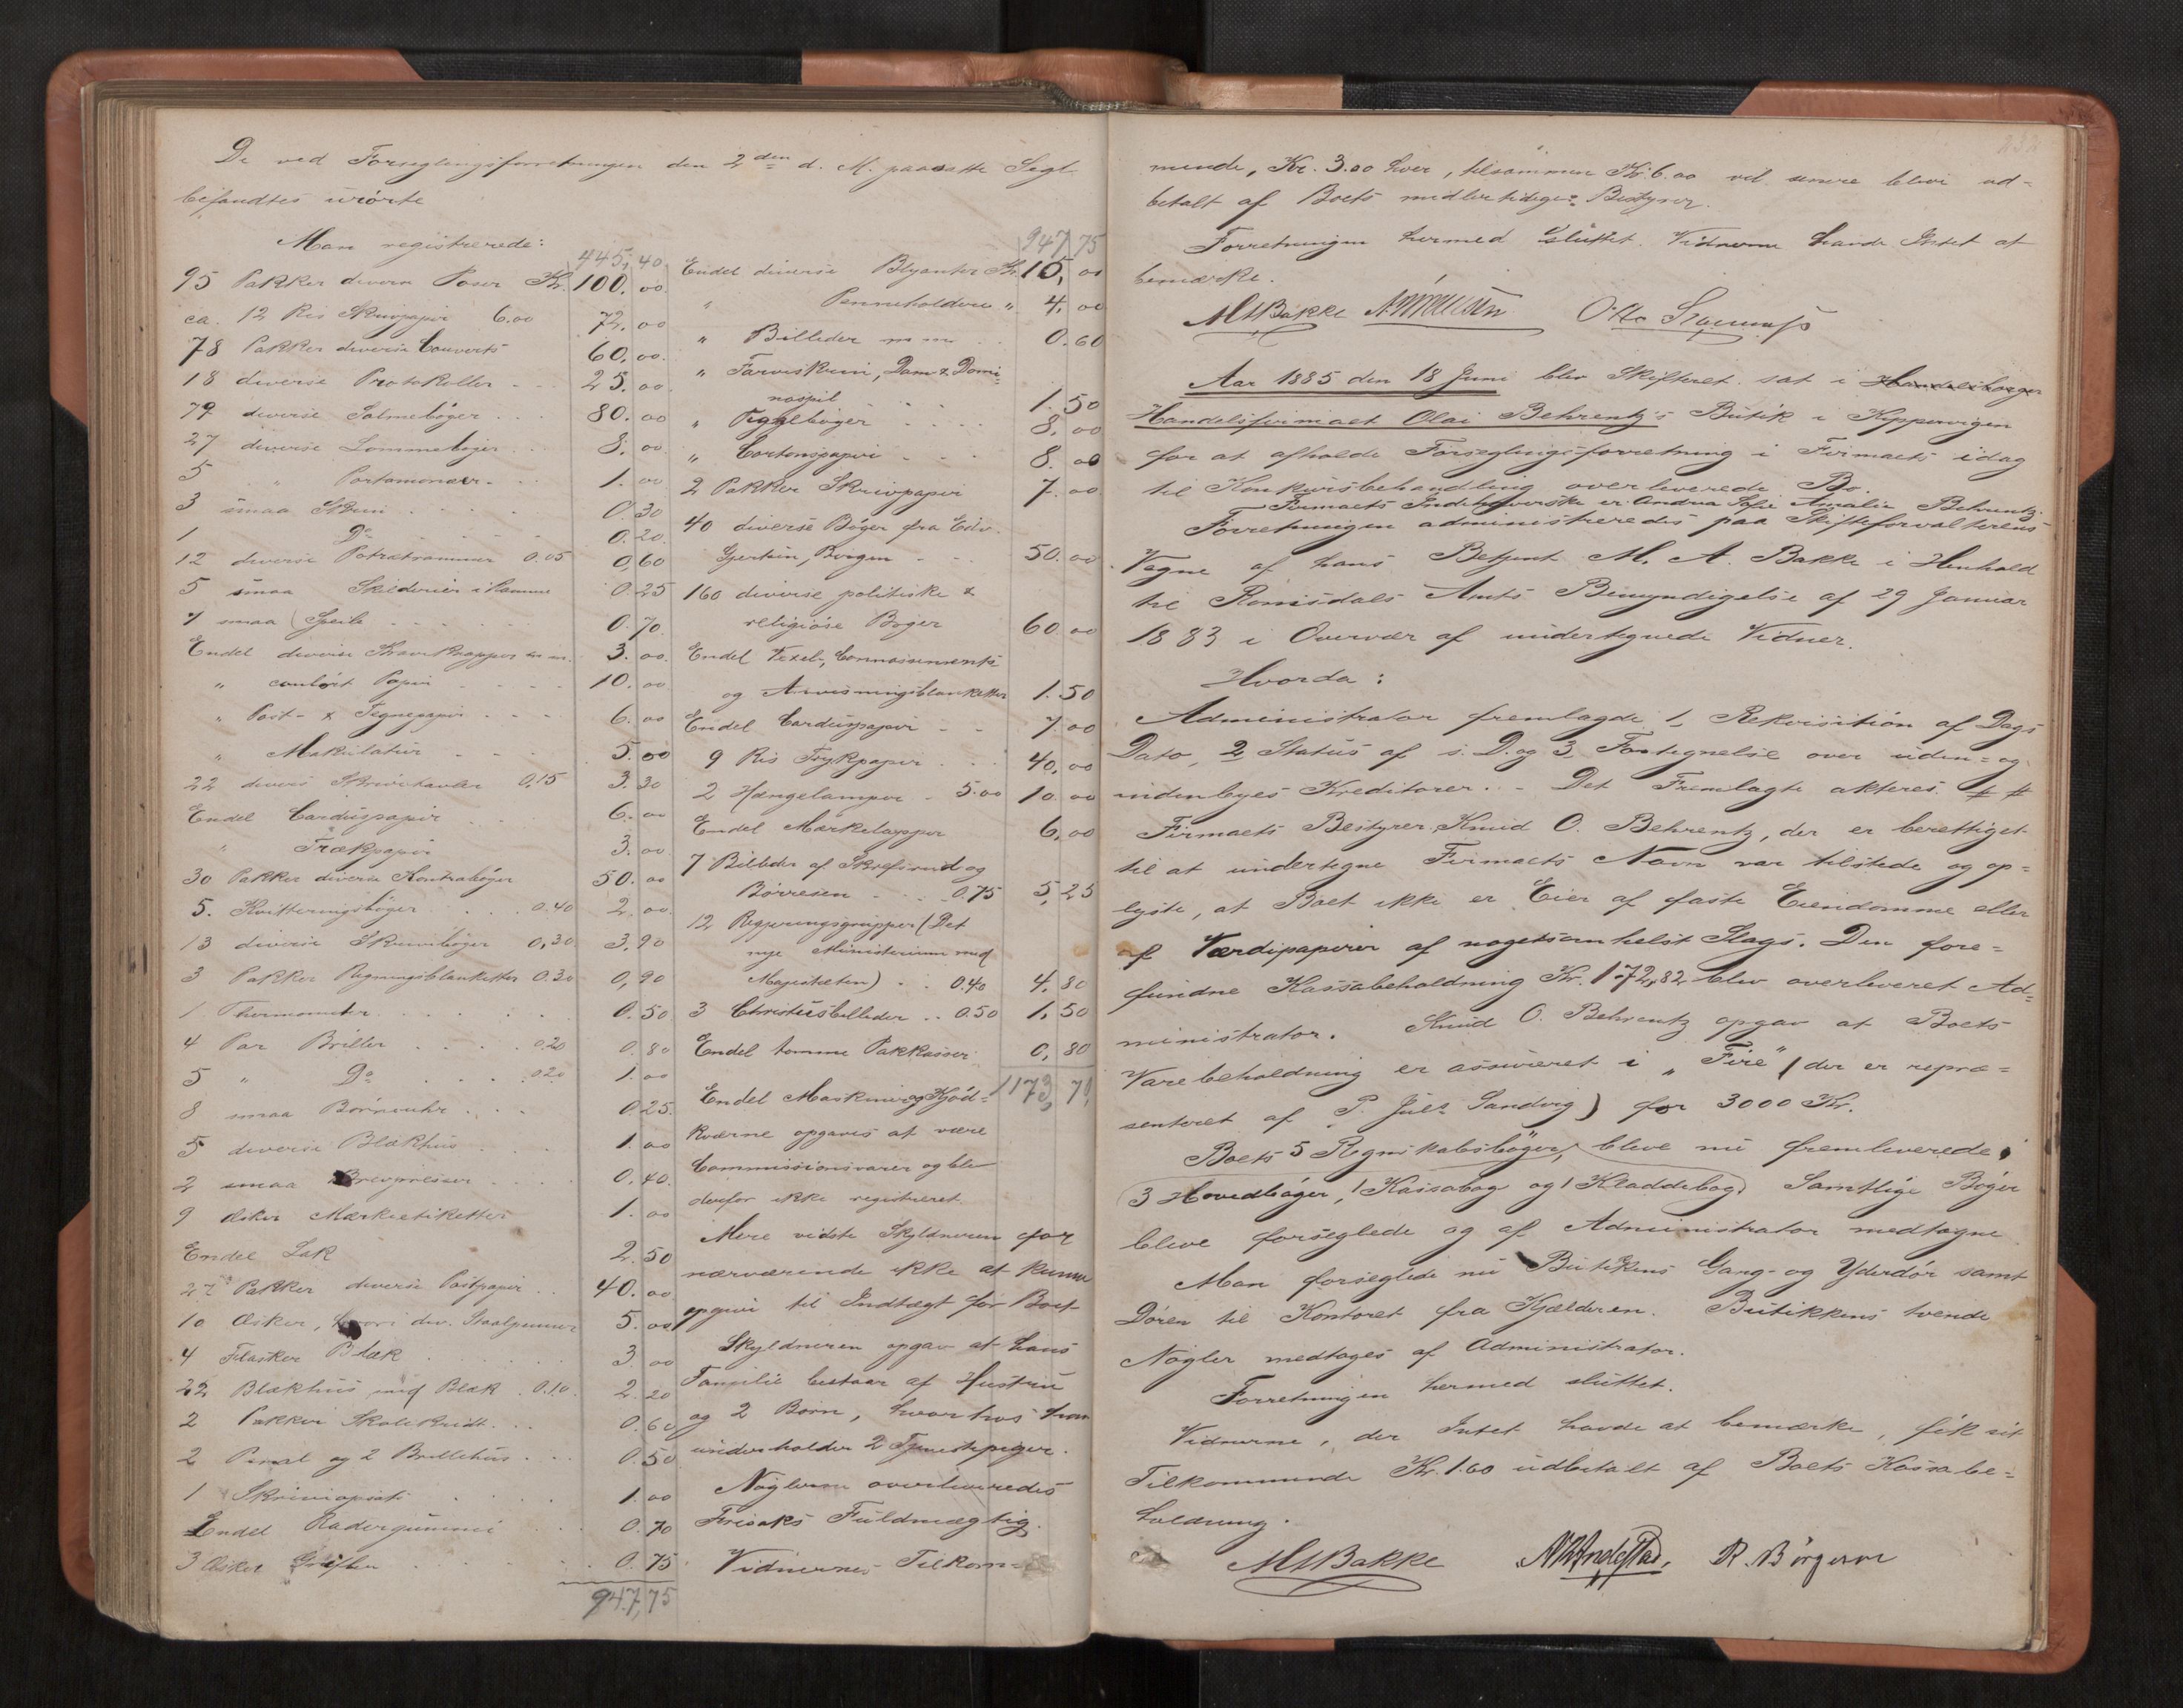 De ved Forseglingsforretningen den 2den d. M. paasatte Segl
befandtes urörte
Man registrerede:
445,40
95 Pakker diverse Poser Kr. 100.00
ca. 12 Ris Skrivpapir 6.00 72.00
78 Pakker diverse Couverts 60.00
18 diverse Protokoller 25.00
79 diverse Salmebøger 80.00
27 diverse Lommebøger 8.00
5 " Portemonæer 1.00
3 smaa Skrin 0.30
1 Do 0.20
12 diverse Portrætrammer 0.05 0,60
5 smaa Skilderier i Ramme 0.25
7 smaa Speile 0.70
Endel diverse Kraveknapper m. m. 3.00
" coulört Papir 10.00
" Post- & Tegnepapir 6.00
" Makulatur 5.00
22 diverse Skrivetavler 0,15 3.30
Endel Carduspapir 6.00
" Trækpapir 3.00
30 Pakker diverse Kontrabøger 50.00
5. Kvitteringsbøger 0.40 2.00
13 diverse Skrivebøger 0,30 3,90
3 Pakker Regningsblanketter 0.30 0,90
1 Thermometer 0.50
4 Par Briller 0.20 0.80
5 " Do 0.20 1.00
8 smaa Børneuhr 0.25
5 diverse Blækhus 1.00
2 smaa Brevpresser 0.40
9 Æsker Mærkeetiketter 1.00
Endel Lak 2.50
27 Pakker diverse Postpapir 40.00
10 Æsker, div. Staalpenner 5.00
4 Flasker Blæk 3.00
22 Blækhus med Blæk 0.10 2.20
2 Pakker Skolekridt 0.60
2 Penal og 2 Brillehus 0.50
1 1.00
Endel Radergummi 0.70
3 Æsker Grifler 0.75
947,75
947,75
Endel diverse Blyanter Kr. 15,00
" Penneholdere " 4,00
" Billeder m m 0.60
" Farveskrin, Dam & Domi-
nospil 1.50
" Fiygelbøger 8.00
" Cartonspapir 8.00
2 Pakker Skrivpapir 7.00
40 diverse Bøger fra Edv.
Gjertsen, Bergen 50.00
160 diverse politiske &
religiøse Bøger 60.00
Endel Vexel-, Connossements
og Anvisningsblanketter 1.50
Endel Carduspapir 7.00
9 Ris Trykpapir 40,00
2 Hængelamper 5.00 10.00
Endel Mærkelapper 6,00
7 Billeder af Skrefsrud og
Børresen 0.75 5,25
12 Regjeringsgrupper (Det
nye Ministerium med
Majestæten) 0.40 4,80
3 Christusbilleder 0.50 1,50
Endel tomme Pakkasser 0,80
1173,70
Endel Maskiner og Kjöd-
kværne opgaves at være
Commissionsvarer og blev
derfor ikke registreret.
Mere vidste Skyldneren for
nærværende ikke at kunne
opgive til Indtægt for Boet
Skyldneren opgav at hans
Familie bestaar af Hustru
og 2 Børn, hvorhos han
underholder 2 Tjenestepiger.
Nøglerne overleveredes
Frisaks Fuldmægtig.
Vidnernes Tilkom-
232
mende, Kr. 3.00 hver, tilsammen Kr. 6.00 vil senere blive ud-
betalt af Boets midlertidige Bestyrer.
Forretningen hermed sluttet. Vidnerne havde Intet at
bemærke.
M A Bakke Otto
Aar 1885 den 18 Juni blev Skifteret sat i Handelsborger
Handelsfirmaet Olai Behrentz's Butik i Kippervigen
for at afholde Forseglingsforretning i Firmaets idag
til Konkursbehandling overleverede Bo.
Firmaets Indehaverske er Andrea Sofie Amalie Behrentz.
Forretningen administreredes paa Skifteforvalterens
Vegne af hans Betjent M. A. Bakke i Henhold
til Romsdals Amts Bemyndigelse af 29 Januar
1883 i Overvær af undertegnede Vidner.
Hvorda:
Administrator fremlagde 1, Rekvisition af Dags
Dato, 2 Status af s. D. og 3, Fortegnelse over uden- og
indenbyes Kreditorer. - Det Fremlagte akteres. ##
Firmaets Bestyrer Knud O. Behrentz, der er berettiget
til at undertegne Firmaets Navn var tilstede og op-
lyste, at Boet ikke er Eier af faste Eiendomme eller
af Værdipapirer af nogetsomhelst Slags. Den fore-
fundne Kassabeholdning Kr. 172,82 blev overleveret Ad-
ministrator. Knud O. Behrentz opgav at Boets
Varebeholdning er assureret i "Fire" (der er repræ-
senteret af P. Juls Sandvig) for 3000 Kr.
Boets 5 Regnskabsbøger, bleve nu fremleverede,
3 Hovedbøger, 1 Kassabog og 1 Kladdebog. Samtlige Bøger
bleve forseglede og af Administrator medtagne
Man forseglede nu Butikkens Gang- og Yderdør samt
Døren til Kontoret fra Kjælderen. Butikkens tvende
Nøgler medtages af Administrator.
Forretningen hermed sluttet.
Vidnerne, der Intet havde at bemærke, fik sit
Tilkommende Kr. 1.60 udbetalt af Boets Kassabe-
holdning.
M A Bakke R. Börgesen